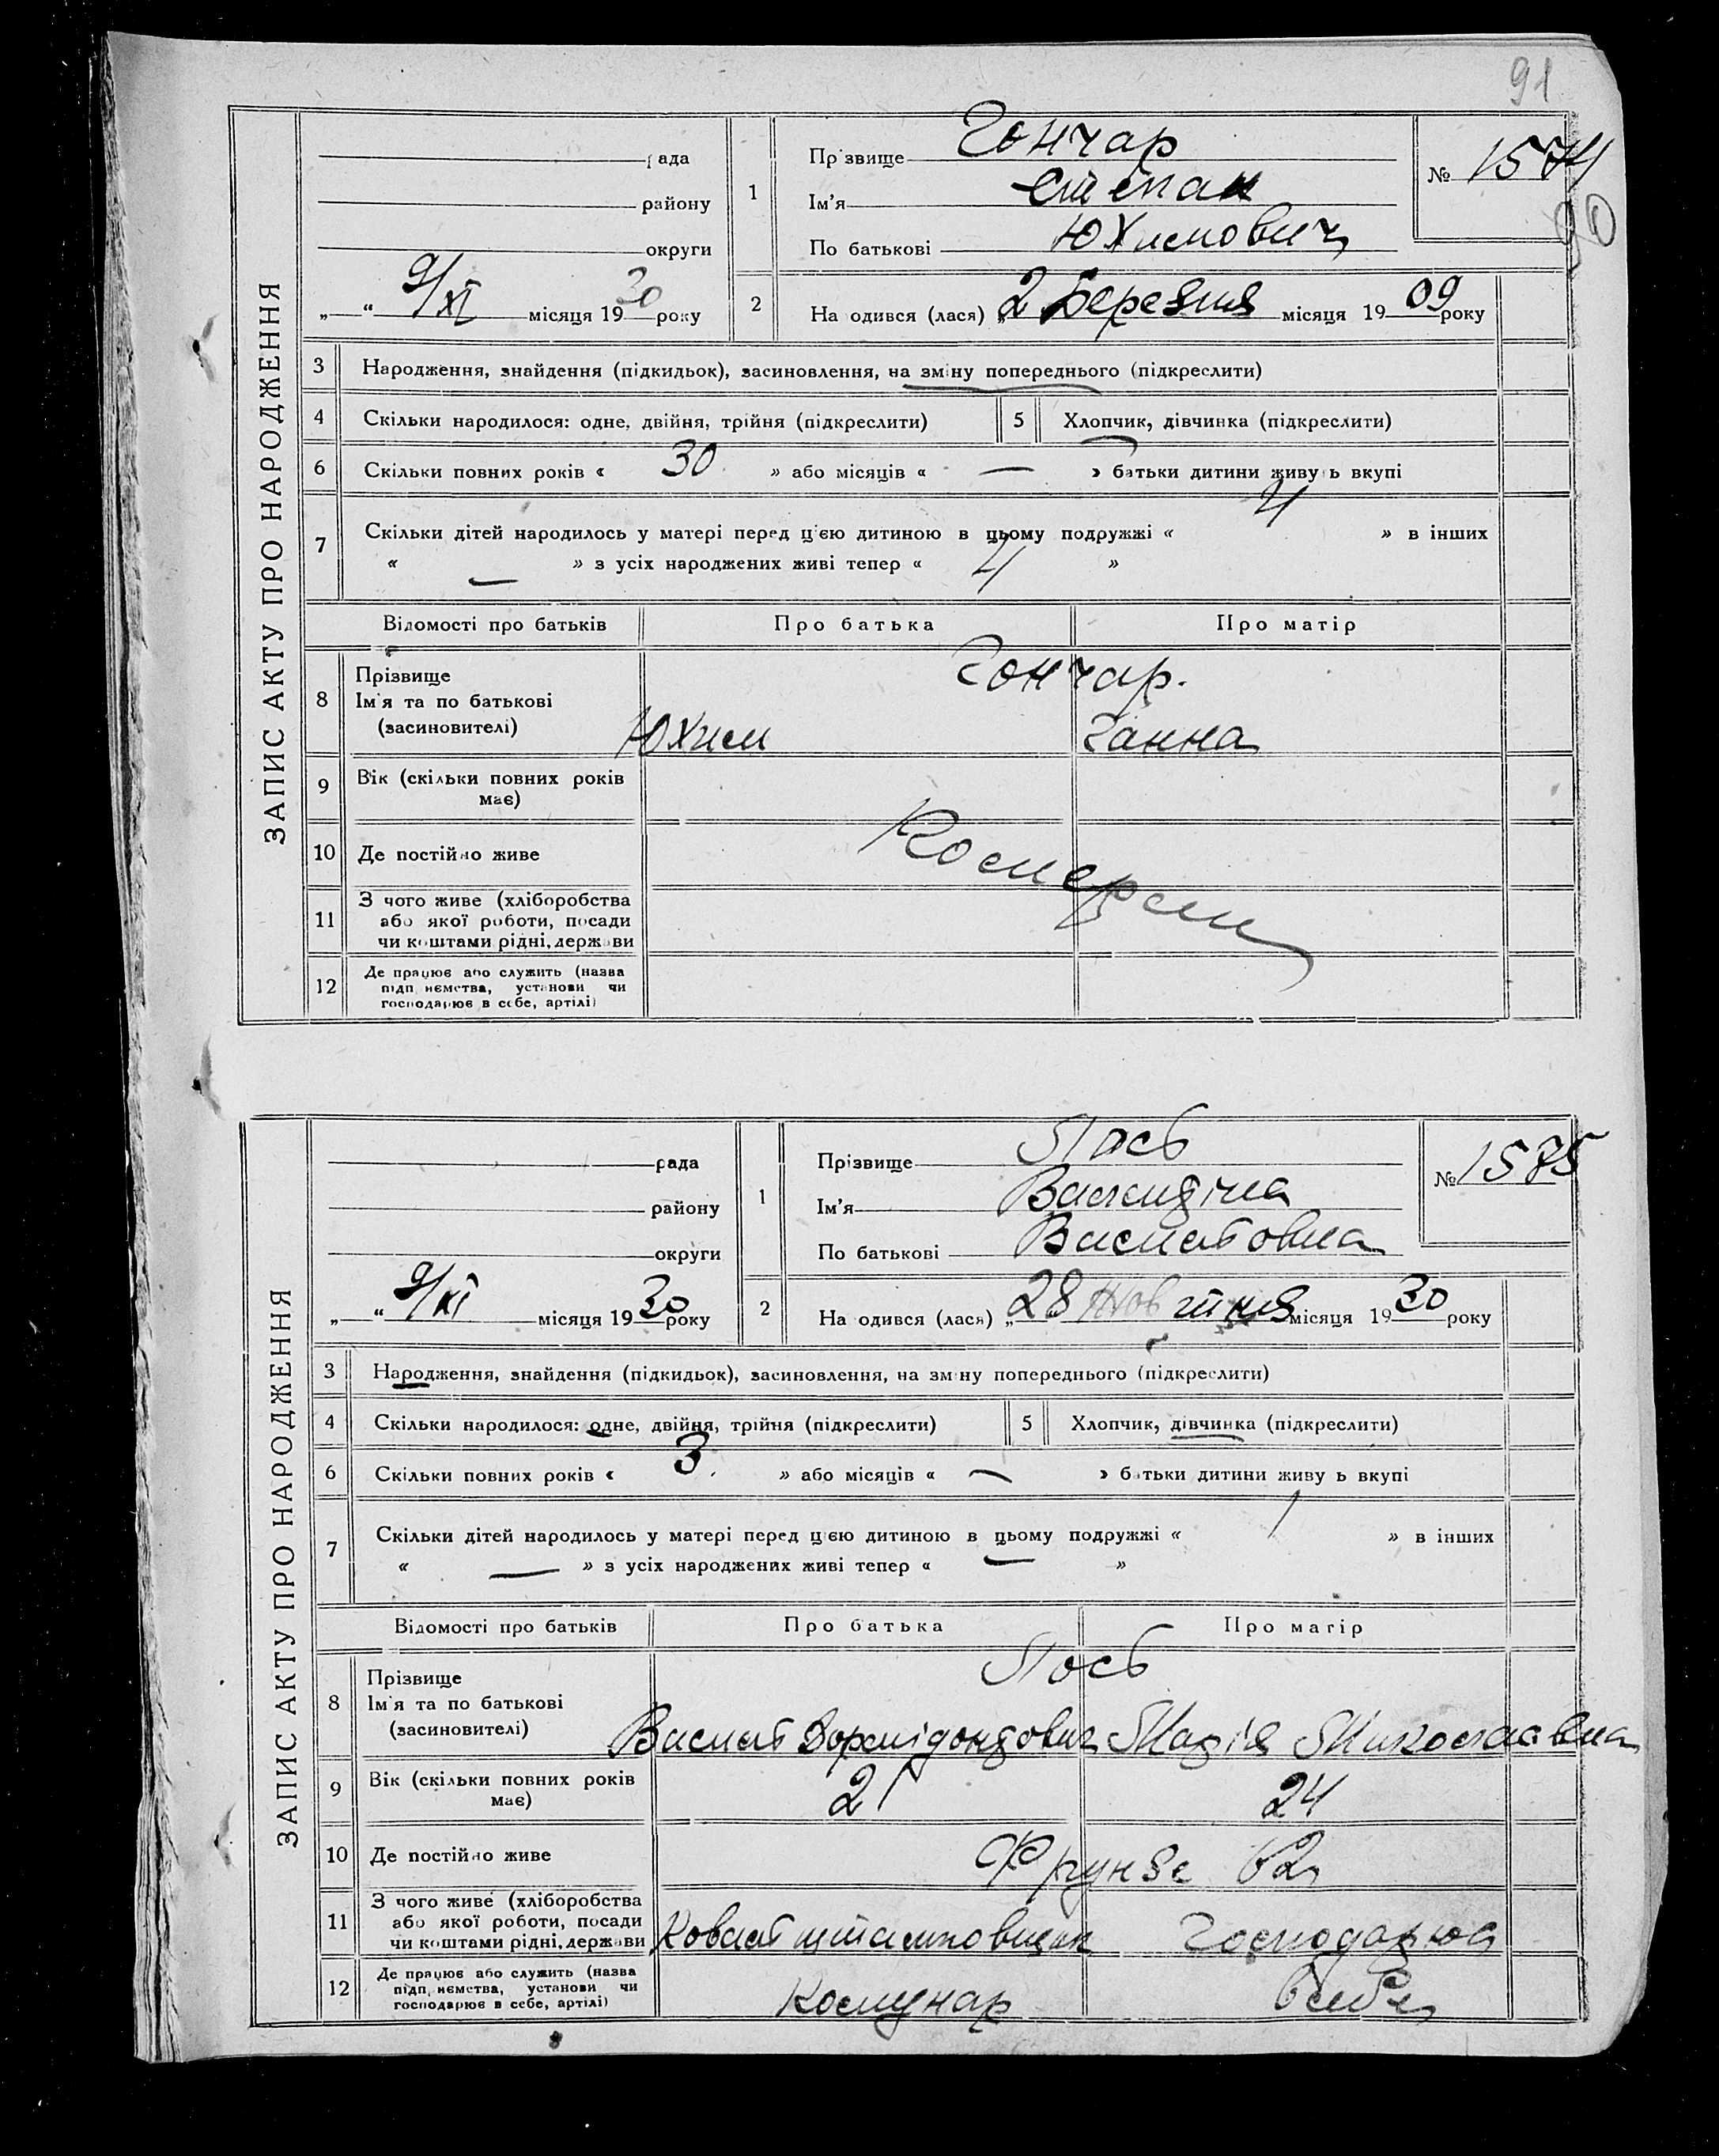 91
90
ЗАПИС АКТУ ПРО НАРОДЖЕННЯ
рада
району
округи
„ “ 9/XI місяця 1930 року
1
Прізвище Гончар
Ім'я Степан
По батькові Юхимович
№ 1574
2
На одився (лася) „2 Березня місяця 1909 року
3 Народження, знайдення (підкидьок), засиновлення, на зміну попереднього (підкреслити)
4 Скільки народилося: одне, двійня, трійня (підкреслити) 5 Хлопчик, дівчинка (підкреслити)
6 Скільки повних років « 30 » або місяців « — » батьки дитини живу ь вкупі
7 Скільки дітей народилось у матері перед цією дитиною в цьому подружжі « 4 » в інших
« — » з усіх народжених живі тепер « 4 »
Відомості про батьків Про батька Про матір
8 Прізвище
Ім'я та по батькові
(засиновителі)
Гончар.
Юхим Ганна
9 Вік (скільки повних років
має)
10 Де постійно живе
11 З чого живе (хліборобства
або якої роботи, посади
чи коштами рідні, держави
12 Де працює або служить (назва
підп иємства, установи чи
господарює в себе, артілі)
ЗАПИС АКТУ ПРО НАРОДЖЕННЯ
рада
району
округи
„ “ 9/XI місяця 1930 року
1
Прізвище Лось
Ім'я
По батькові
№ 1575
2
На одився (лася) „28 Жовтня місяця 1930 року
3 Народження, знайдення (підкидьок), засиновлення, на зм ну попереднього (підкреслити)
4 Скільки народилося: одне, двійня, трійня (підкреслити) 5 Хлопчик, дівчинка (підкреслити)
6 Скільки повних років « 3. » або місяців « — » батьки дитини живу ь вкупі
7 Скільки дітей народилось у матері перед цією дитиною в цьому подружжі « 1 » в інших
« — » з усіх народжених живі тепер « — »
Відомості про батьків Про батька Про матір
8 Прізвище
Ім'я та по батькові
(засиновителі)
Лось
Миколаївна
9 Вік (скільки повних років
має)
21 24
10 Де постійно живе
Фрунзе 62
11 З чого живе (хліборобства
або якої роботи, посади
чи коштами рідні, держави
Коваль штамповщик Господарює
12 Де працює або служить (назва
підп иємства, установи чи
господарює в себе, артілі)
Комунар в себе